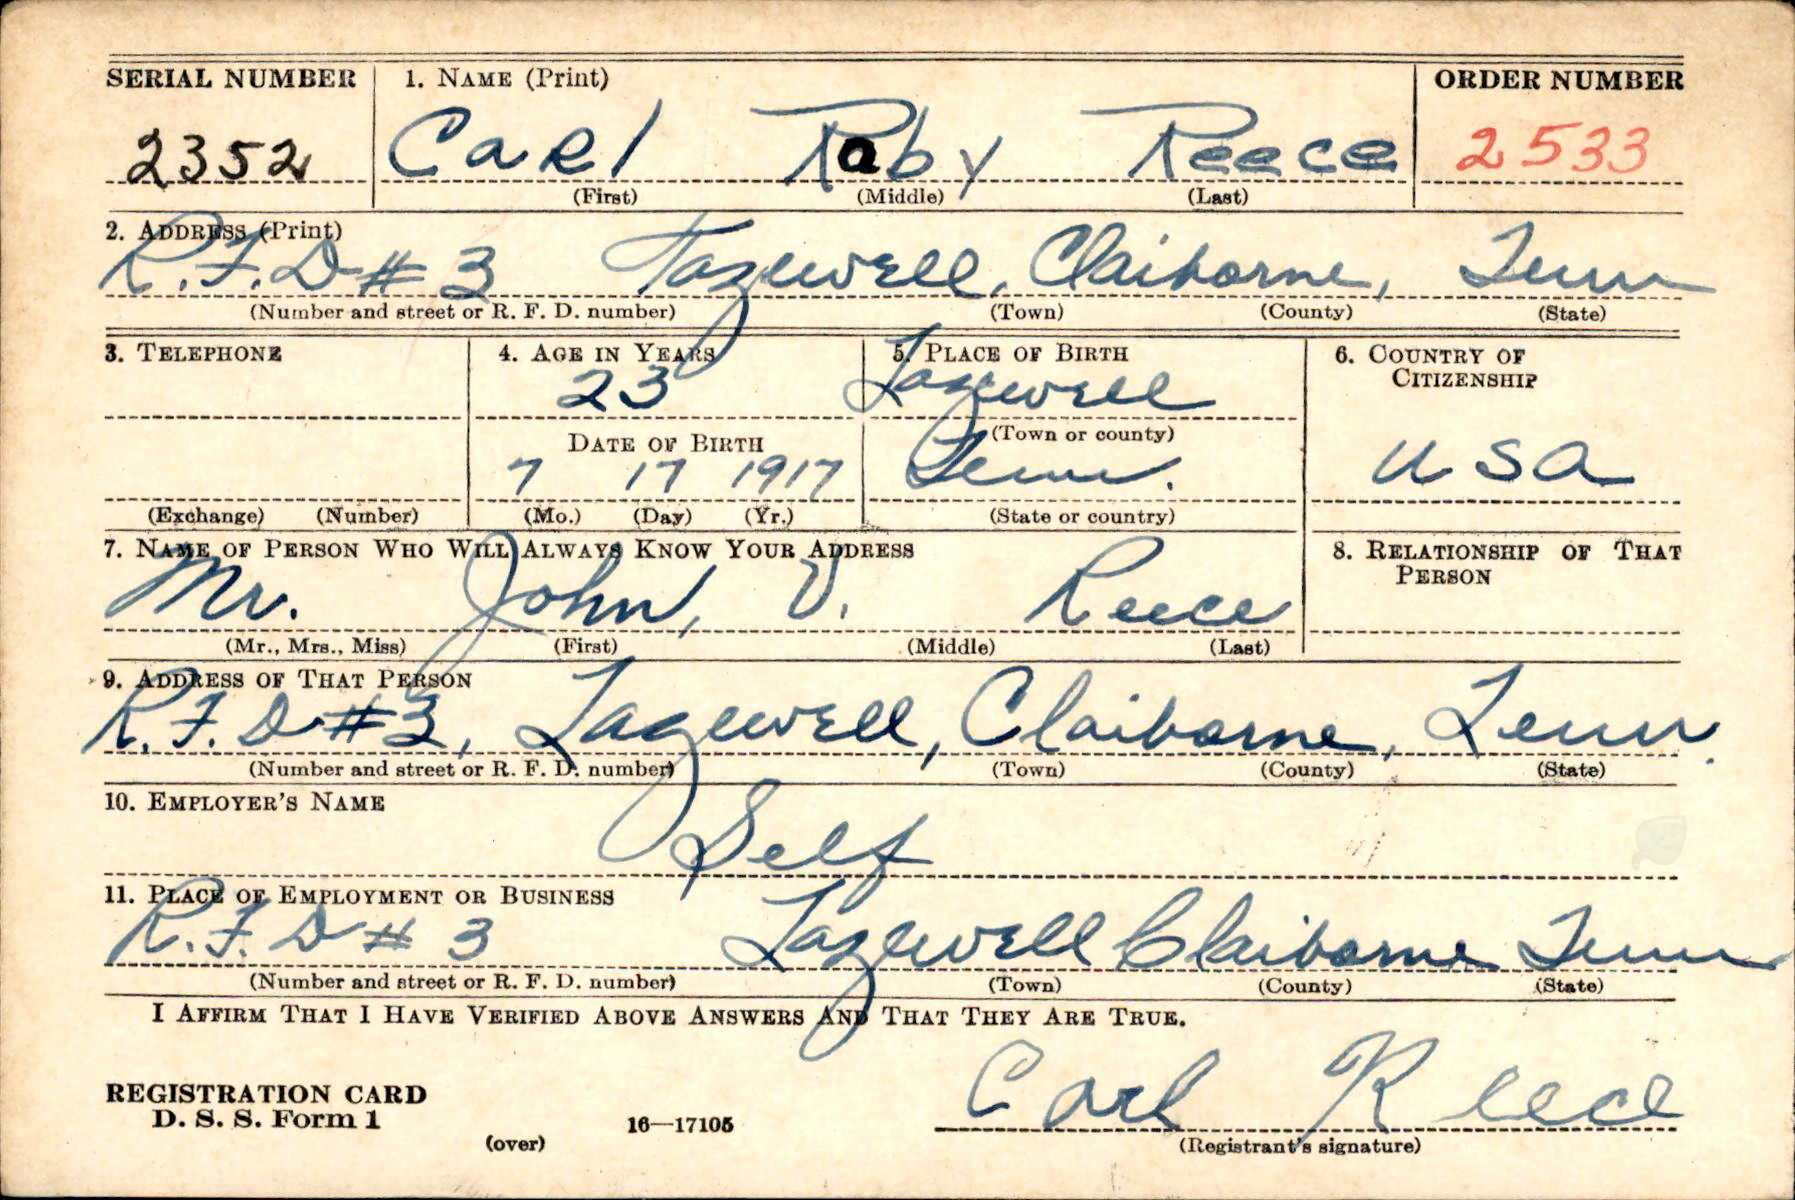 SERIAL NUMBER 1. NAME (Print) ORDER NUMBER
2352 Carl Raby Reece 2533
(First) (Middle) (Last)
2. ADDRESS (Print)
R.F.D # 3 Tazewell, Claiborne, Tenn
(Number and street or R. F. D. number) (Town) (County) (State)
3. TELEPHONE 4. AGE IN YEARS 5. PLACE OF BIRTH 6. COUNTRY OF CITIZENSHIP
23 Tazewell
(Town or county)
DATE OF BIRTH
7 17 1917 Tenn. USA
(Exchange) (Number) (Mo.) (Day) (Yr.) (State or country)
7. NAME OF PERSON WHO WILL ALWAYS KNOW YOUR ADDRESS 8. RELATIONSHIP OF THAT PERSON
Mr. John, V. Reece
(Mr., Mrs., Miss) (First) (Middle) (Last)
9. ADDRESS OF THAT PERSON
R.F.D #3, Tazewell, Claiborne, Tenn.
(Number and street or R. F. D. number) (Town) (County) (State)
10. EMPLOYER'S NAME
Self
11. PLACE OF EMPLOYMENT OR BUSINESS
R.F.D # 3 Tazewell Claiborne Tenn
(Number and street or R. F. D. number) (Town) (County) (State)
I AFFIRM THAT I HAVE VERIFIED ABOVE ANSWERS AND THAT THEY ARE TRUE.
Carl Reece
REGISTRATION CARD
D. S. S. Form 1 16—17105
(over) (Registrant's signature)